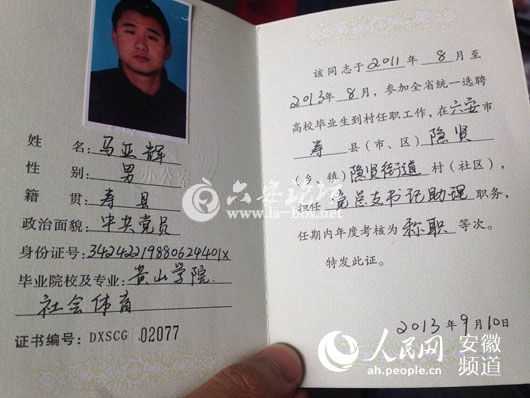 姓名:马亚辉
性别:男
籍贯:寿县
政治面貌:中共党员
身份证号:34242219880624401X
毕业院校及专业:黄山学院
社会体育
证书编号:DXSCG 02077
该同志于2011年8月至
2013年8月,参加全省统一选聘
高校毕业生到村任职工作,在六安市
寿县(市、区)隐贤
(乡、镇)隐贤街道村(社区),
担任党总支书记助理职务,
任期内年度考核为称职等次。
特发此证。
2013年9月10日
六安论坛
www.la-bbs.net
人民网 安徽频道
ah.people.cn